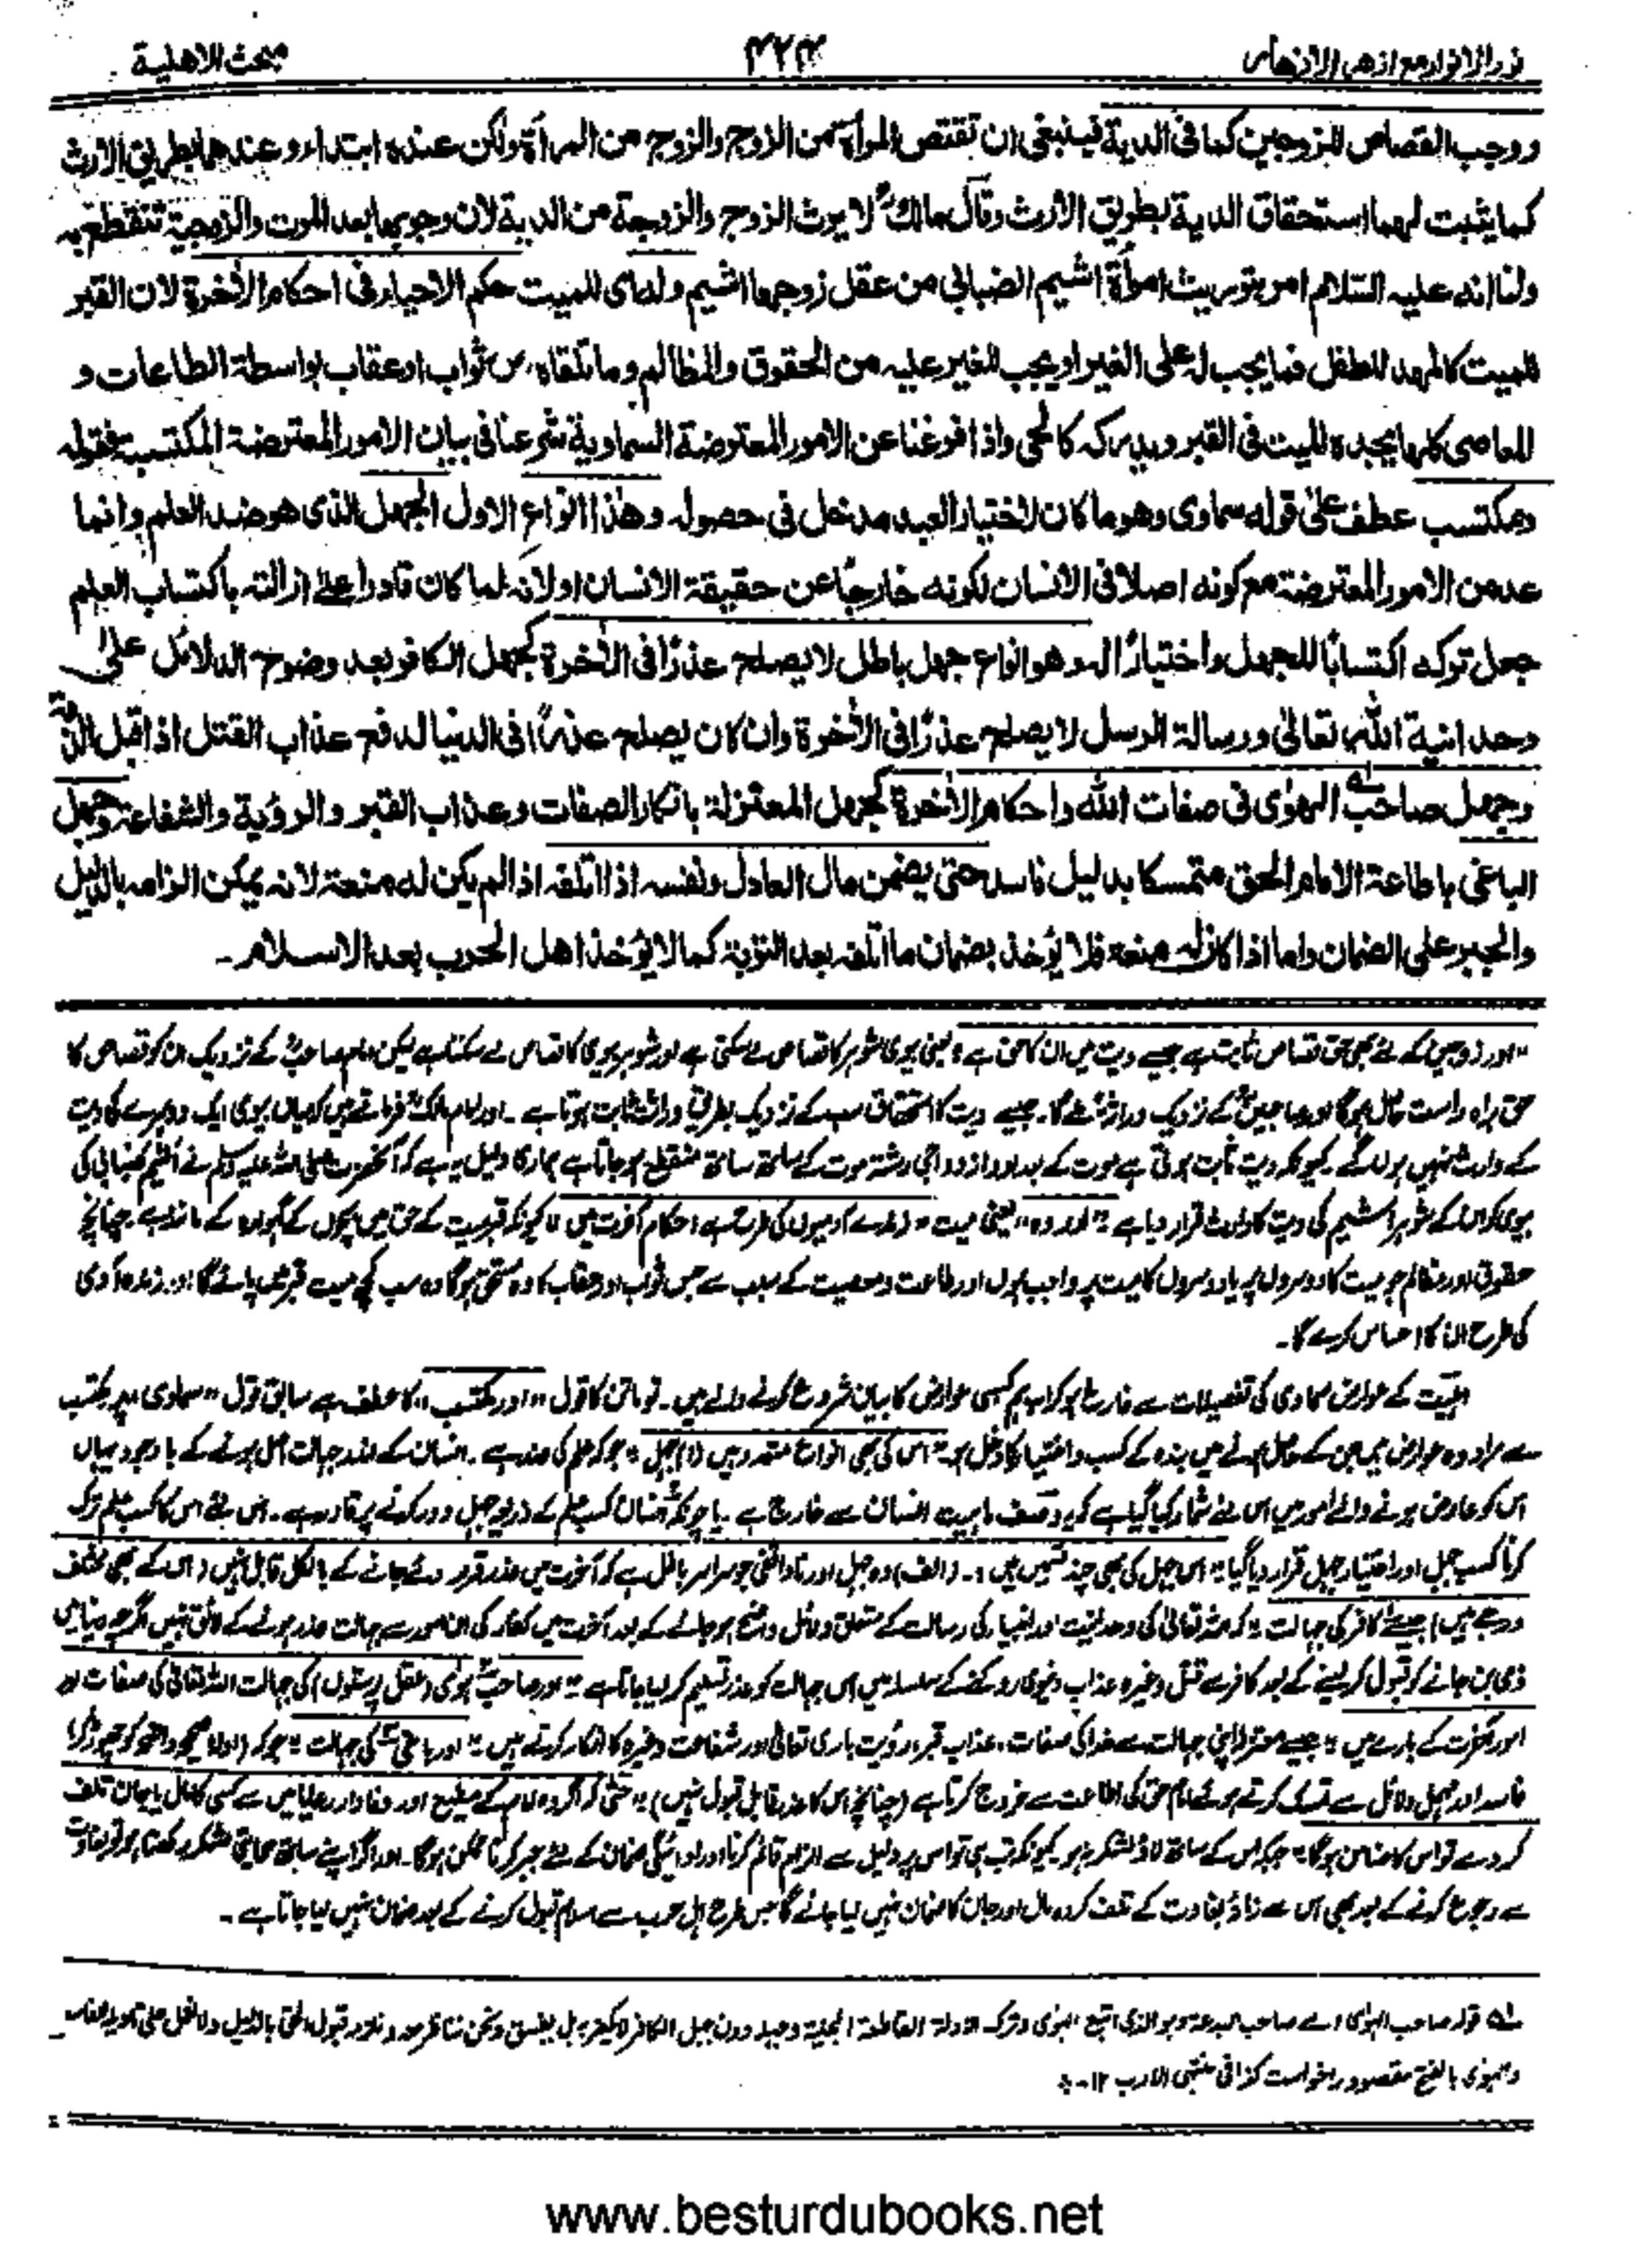 نور الانوار مع ازهر الازهار
۴۲۴
مبحث الاهلية
ووجب القصاص للزوجين كما فى الدية فينبغى ان تقتص المرأة من الزوج والزوج من المرأة ولكن عنده ابتداء وعندهما بطريق الارث
كما يثبت لهما استحقاق الدية بطريق الارث وقال مالكؒ لا يرث الزوج والزوجة من الدية لان وجوبها بعد الموت والزوجية تنقطع به
ولنا انه عليه السلام امر بتوريث امرأة اشيم الضبابى من عقل زوجها اشيم وله اى للميت حكم الاحياء فى احكام الأخرة لان القبر
للميت كالمهد للطفل فما يجب له على الغير او يجب للغير عليه من الحقوق والمظالم وما تلقاه من ثواب او عقاب بواسطة الطاعات و
المعاصى كلها يجده الميت فى القبر ويدركه كالحى واذا فرغنا عن الامور المعترضة السماوية شرعنا فى بيان الامور المعترضة المكتسبة فقوله
ومكتسب عطف على قوله سماوى وهو ما كان لاختيار العبد مدخل فى حصوله وهذا انواع الاول الجهل الذى هو ضد العلم وانما
عد من الامور المعترضة مع كونه اصلا فى الانسان لكونه خارجًا عن حقيقة الانسان او لانه لما كان قادرا على ازالته باكتساب العلم
جعل تركه اكتسابًا للجهل واختيارًا له وهو انواع جهل باطل لا يصلح عذرًا فى الأخرة كجهل الكافر بعد وضوح الدلائل على
وحدانية الله تعالىٰ ورسالة الرسل لا يصلح عذرًا فى الأخرة وان كان يصلح عذرًا فى الدنيا لدفع عذاب القتل اذا قبل الذمة
وجهل صاحب الهوٰى فى صفات الله واحكام الأخرة كجهل المعتزلة بانكار الصفات وعذاب القبر والرؤية والشفاعة وجهل
الباغى باطاعة الامام الحق متمسكا بدليل فاسد حتى يضمن مال العادل ونفسه اذا اتلفه اذا لم يكن له منعة لانه يمكن الزامه بالدليل
والجبر على الضمان واما اذا كان له منعة فلا يؤخذ بضمان ما اتلفه بعد التوبة كما لا يؤخذ اهل الحرب بعد الاسلام۔
"اور زوجین کے لئے بھی حق قصاص ثابت ہے جیسے دیت میں ان کا حق ہے" یعنی بیوی شوہر کا قصاص لے سکتی ہے اور شوہر بیوی کا قصاص لے سکتا ہے لیکن امام صاحبؒ کے نزدیک ان کو قصاص کا
حق براہ راست حاصل ہوگا اور صاحبینؒ کے نزدیک وراثۃً ملے گا۔ جیسے دیت کا استحقاق سب کے نزدیک بطریق وراثت ثابت ہوتا ہے۔ اور امام مالکؒ فرماتے ہیں کہ میاں بیوی ایک دوسرے کی دیت
کے وارث نہیں ہوں گے۔ کیونکہ دیت ثابت ہوتی ہے موت کے بعد اور ازدواجی رشتہ موت کے ساتھ ساتھ منقطع ہو جاتا ہے ہماری دلیل یہ ہے کہ آنحضرت صلی اللہ علیہ وسلم نے اشیم ضبابی کی
بیوی کو اس کے شوہر اشیم کی دیت کا وارث قرار دیا ہے "اور وہ" یعنی میت "زندے آدمیوں کی طرح ہے احکام آخرت میں" کیونکہ قبر میت کے حق میں بچوں کے گہوارہ کے مانند ہے۔ چنانچہ
حقوق اور مظالم جو میت کا دوسروں پر یا دوسروں کا میت پر واجب ہوں اور طاعت و معصیت کے سبب سے جس ثواب اور عقاب کا وہ مستحق ہوگا وہ سب کچھ میت قبر میں پائے گا اور زندہ آدمی
کی طرح ان کا احساس کرے گا۔
اہلیت کے عوارض سماوی کی تفصیلات سے فارغ ہو کر اب ہم کسبی عوارض کا بیان شروع کرنے والے ہیں۔ تو ماتن کا قول "اور مکتسب" کا عطف ہے سابق قول "سماوی" پر۔ مکتسب
سے مراد وہ عوارض ہیں جن کے حاصل ہونے میں بندہ کے کسب و اختیار کا دخل ہو "اس کی بھی انواع متعدد ہیں (۱) جہل" جو کہ علم کی ضد ہے۔ انسان کے اندر جہالت اصل ہونے کے باوجود یہاں
اس کو عارض ہونے والے امور میں اس لئے شمار کیا گیا ہے کہ یہ وصف ماہیت انسان سے خارج ہے۔ یا چونکہ انسان کسب علم کے ذریعہ جہل دور کرنے پر قادر ہے۔ اس لئے اس کا کسب علم ترک
کرنا کسب جہل اور اختیار جہل قرار دیا گیا "اس جہل کی بھی چند قسمیں ہیں"۔ (الف) وہ جہل اور ناواقفی جو سراسر باطل ہے کہ آخرت میں عذر قرار دئے جانے کے بالکل قابل نہیں (اس کے بھی مختلف
درجے ہیں) جیسے کافر کی جہالت "کہ اللہ تعالیٰ کی وحدانیت اور انبیاء کی رسالت کے متعلق دلائل واضح ہو جانے کے بعد آخرت میں کفار کی ان امور سے جہالت عذر ہونے کے لائق نہیں اگرچہ دنیا میں
ذمی بن جانے کو قبول کر لینے کے بعد کافر سے قتل وغیرہ عذاب دنیوی روکنے کے سلسلہ میں اس جہالت کو عذر تسلیم کر لیا جاتا ہے" اور صاحب ہوٰی (عقل پرستوں) کی جہالت اللہ تعالیٰ کی صفات اور
امور آخرت کے بارے میں" جیسے معتزلہ اپنی جہالت سے خدا کی صفات، عذاب قبر، رؤیت باری تعالیٰ اور شفاعت وغیرہ کا انکار کرتے ہیں" اور باغی کی جہالت" جو کہ (ادلہ صحیحہ واضحہ کو چھوڑ کر)
فاسد اور مہمل دلائل سے تمسک کرتے ہوئے امام حق کی اطاعت سے خروج کرتا ہے (چنانچہ اس کا عذر قابل قبول نہیں) "حتیٰ کہ اگر وہ امام کے مطیع اور وفادار رعایا میں سے کسی کا مال یا جان تلف
کر دے تو اس کا ضامن ہوگا" جبکہ اس کے ساتھ لاؤ لشکر نہ ہو۔ کیونکہ تب ہی تو اس پر دلیل سے الزام قائم کرنا اور ادائیگی ضمان کے لئے جبر کرنا ممکن ہوگا۔ اور اگر اپنے ساتھ حمایتی لشکر رکھتا ہو تو بغاوت
سے رجوع کرنے کے بعد بھی اس سے زمانۂ بغاوت کے تلف کردہ مال اور جان کا ضمان نہیں لیا جائے گا جس طرح اہل حرب سے اسلام قبول کرنے کے بعد ضمان نہیں لیا جاتا ہے۔
قولہ صاحب الہوٰی اے صاحب البدعة وہو الذی اتبع الہوٰی وترک الادلة القاطعة الجلية وجہلہ دون جہل الکافر لا یکفر بہ بل یفسق ونحن نناظر معہ ونلزمہ قبول الحق بالدلیل ولا نعمل علی تاویلہ الفاسد
والہوٰی بالفتح مقصور خواست کذا فی منتہی الارب ۱۲۔
www.besturdubooks.net